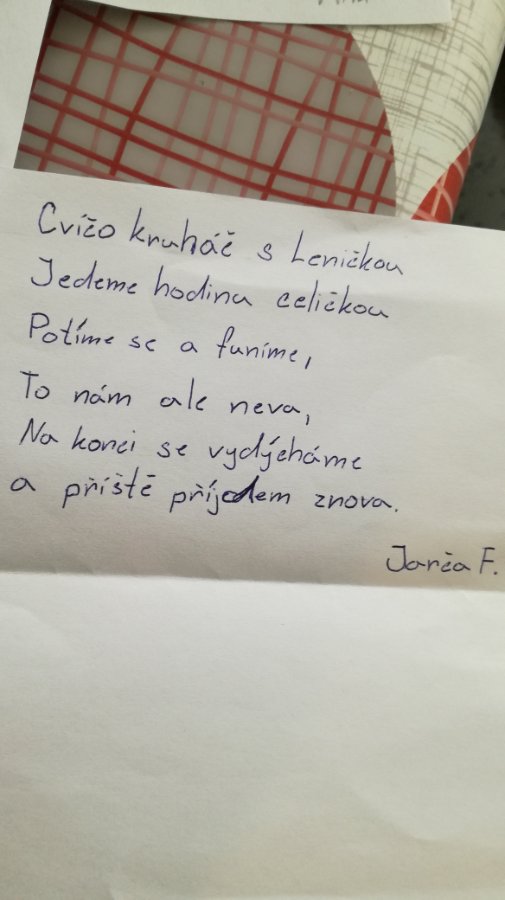 Cvíčo kruháč s Leničkou
Jedeme hodinu celičkou
Potíme se a funíme,
To nám ale neva,
Na konci se vydýcháme
a příště příjdem znova.
Jarča F.